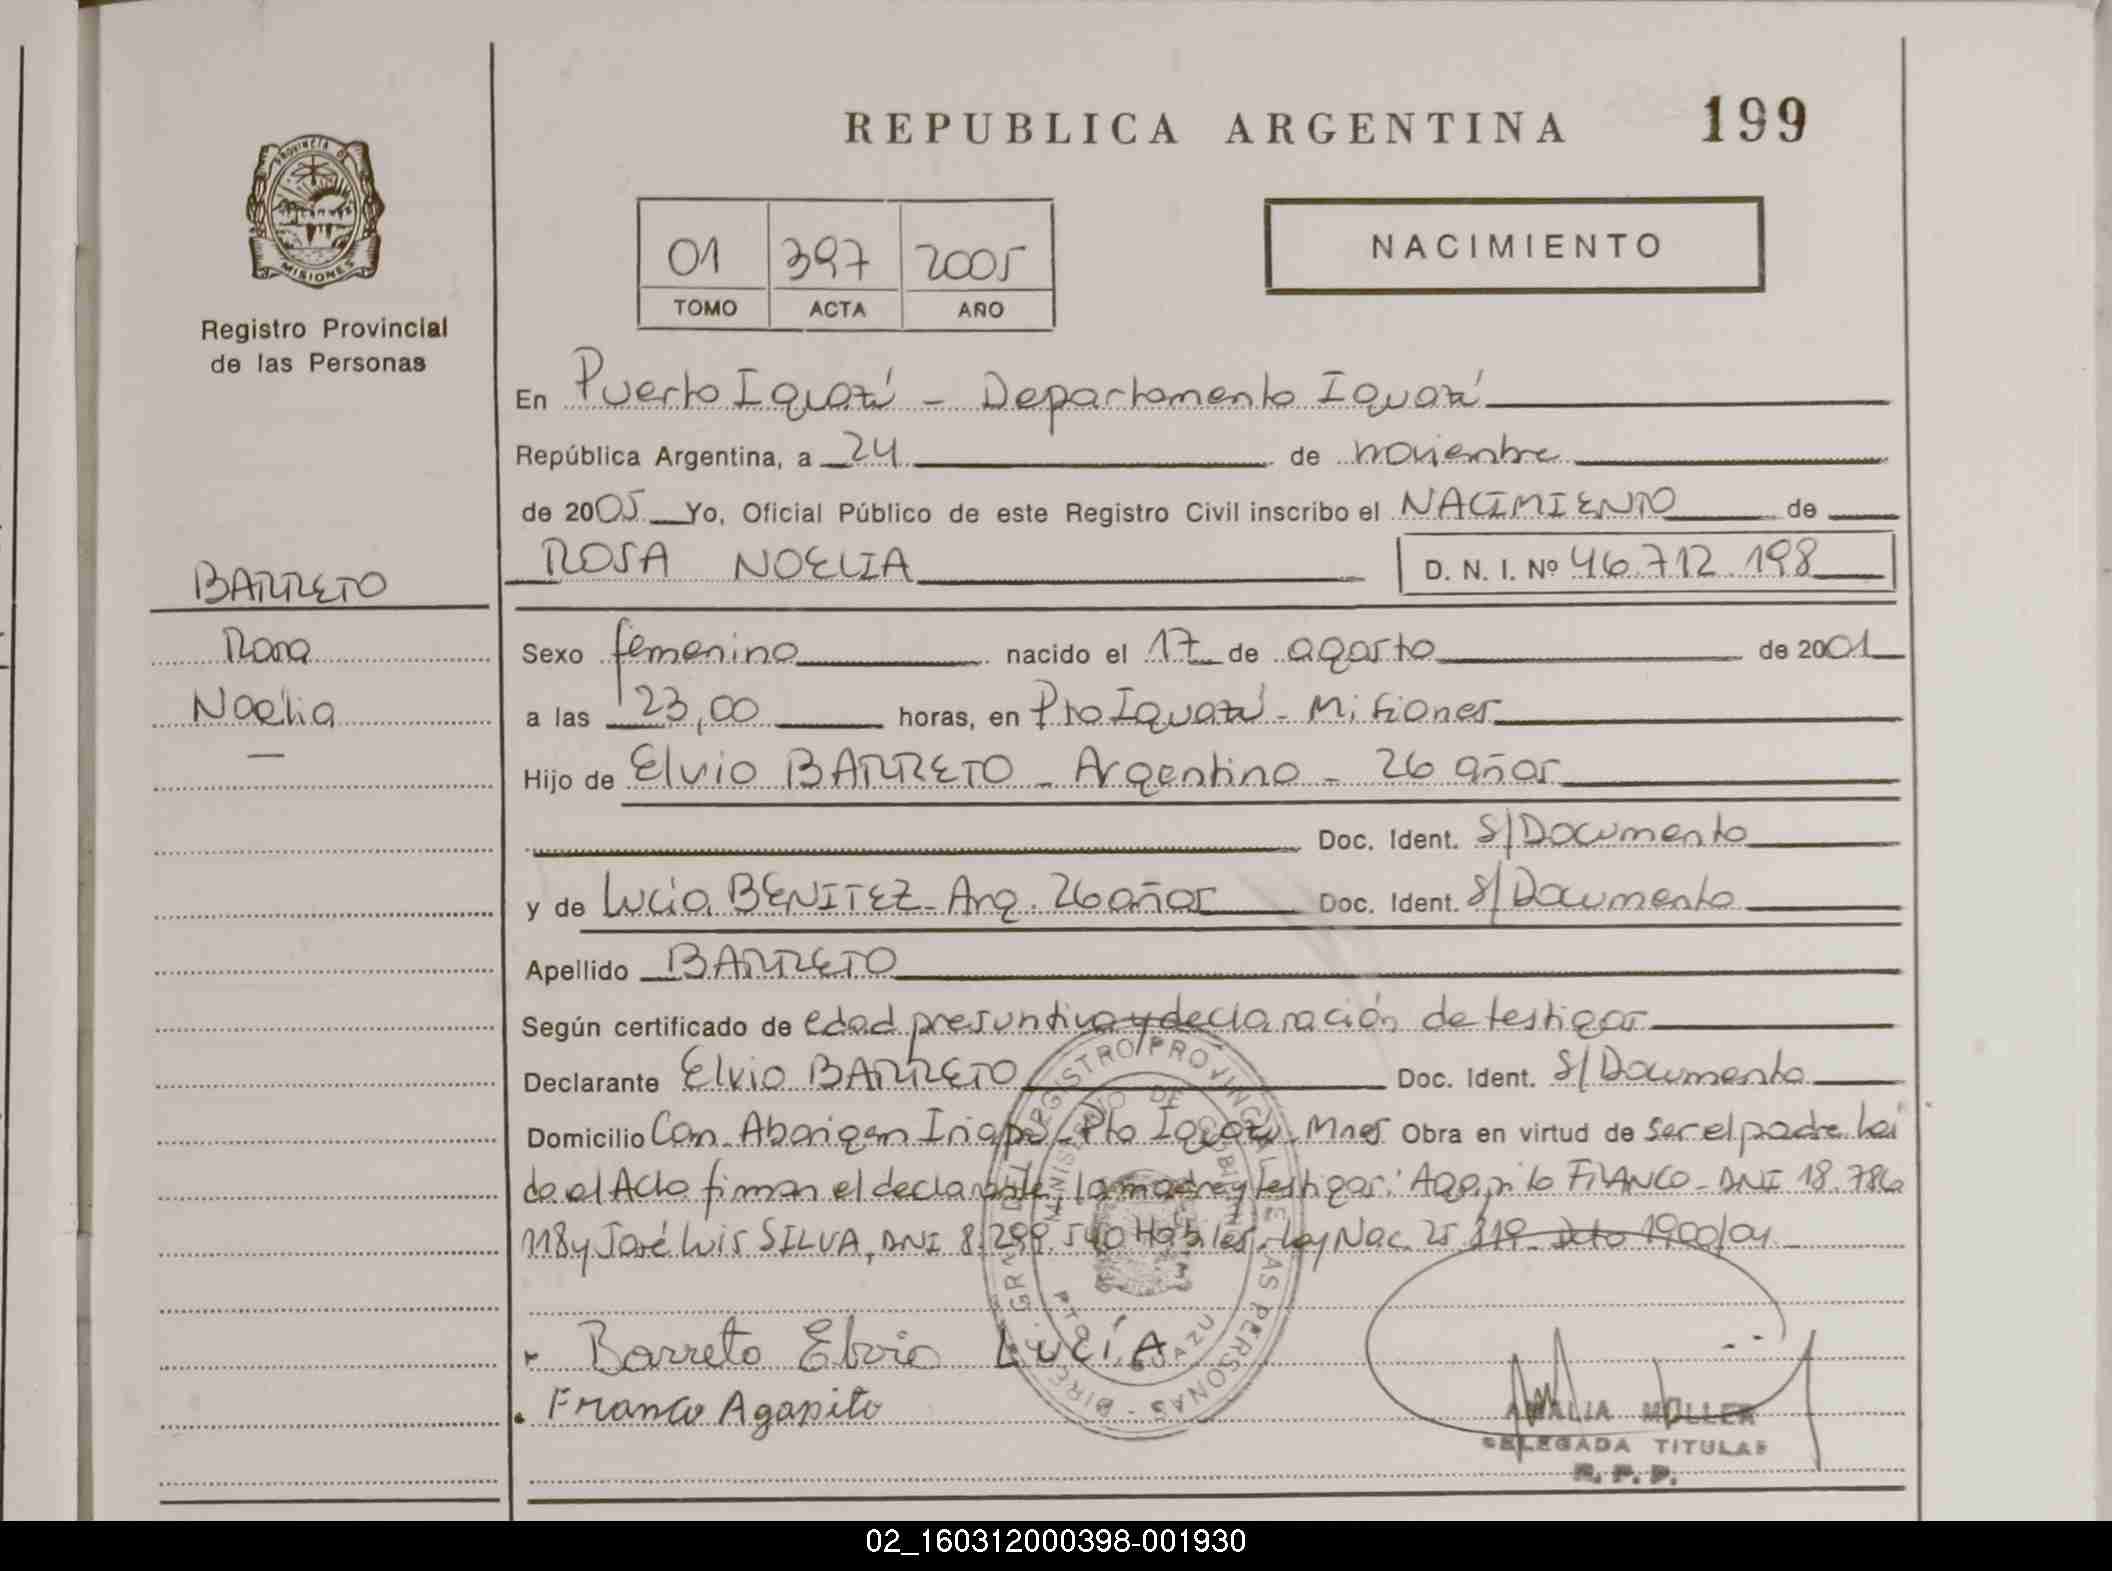 REPUBLICA ARGENTINA 199
PROVINCIA DE
MISIONES
Registro Provincial
de las Personas
01 397 2005
TOMO ACTA AÑO
NACIMIENTO
En Puerto Iguazú - Departamento Iguazú
República Argentina, a 24 de noviembre
de 2005 Yo, Oficial Público de este Registro Civil inscribo el NACIMIENTO de
ROSA NOELIA D. N. I. Nº 46.712.198
BARRETO
Rosa
Noelia
Sexo femenino nacido el 17 de agosto de 2001
a las 23,00 horas, en Pto Iguazú - Misiones
Hijo de Elvio BARRETO - Argentino - 26 años
Doc. Ident. S/Documento
y de Lucía BENITEZ - Arg. 26 años Doc. Ident. S/Documento
Apellido BARRETO
Según certificado de edad presuntiva y declaración de testigos
Declarante Elvio BARRETO Doc. Ident. S/Documento
Domicilio Com. Aborigen Iriapú - Pto Iguazú - Mnes Obra en virtud de ser el padre Leí
da el Acta firman el declarante, la madre y testigos: Agapito FRANCO - DNI 18.786
118 y José Luis SILVA, DNI 8.299.540 Hábiles. Ley Nac. 25.819 - Dcto 1900/04
Barreto Elvio LUCíA
Franco Agapito
REGISTRO PROVINCIAL DE LAS PERSONAS
MINISTERIO DE GOBIERNO
PTO. IGUAZU
AMALIA MULLER
DELEGADA TITULAR
R. P. P.
02_160312000398-001930